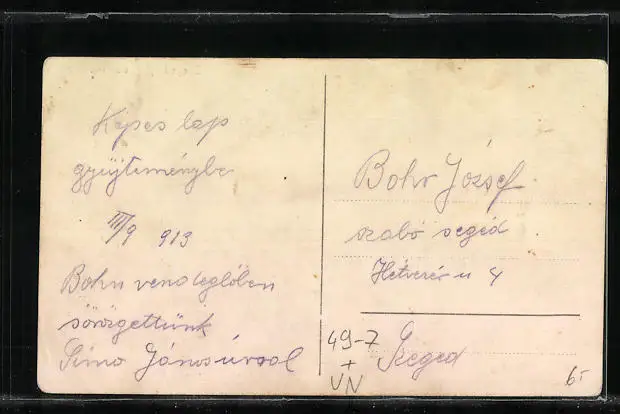 Képes lap
gyüjteménybe
III/9 913
Bohn vendeglőben
söröz­gettünk
Simo Jánosúrral
Bohr József
szabó segéd
u 4
Szeged
49-7
+
VN
6.-